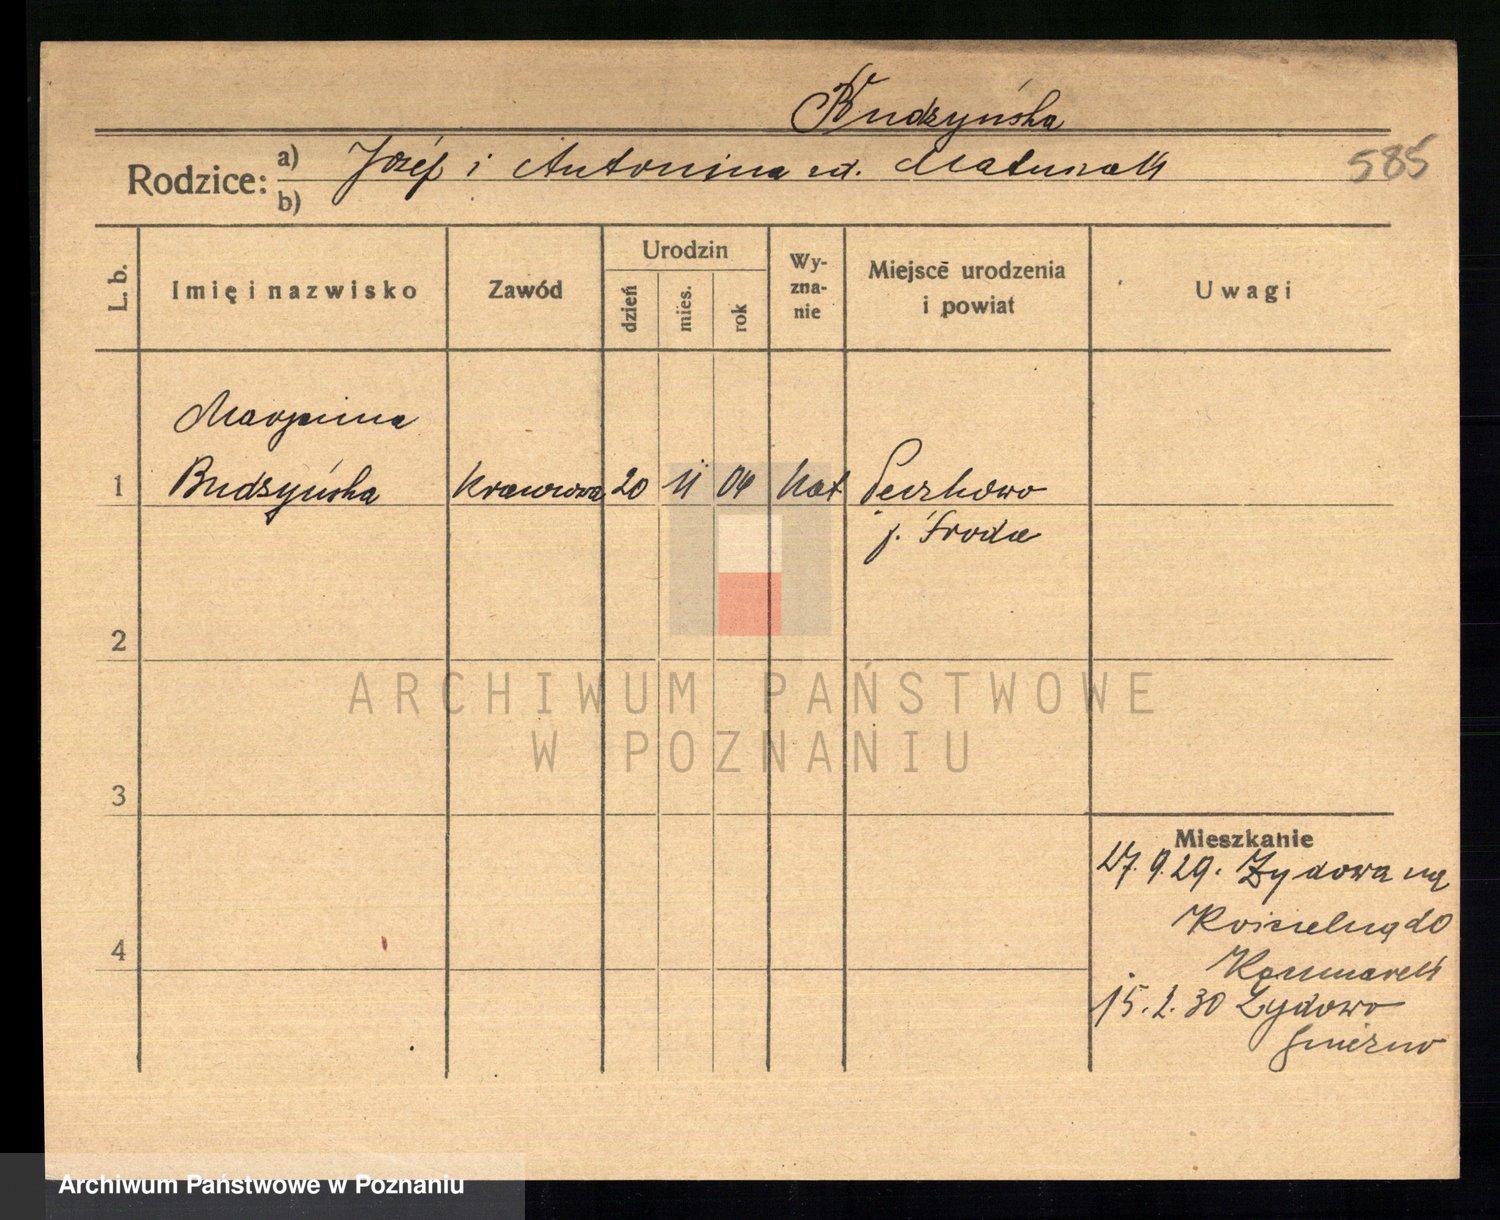 Budzyńska
585
Rodzice: a) Józef i Antonina zd. Matuszak
b)
L. b.
Imię i nazwisko
Zawód
Urodzin
dzień
mies.
rok
Wy-
zna-
nie
Miejsce urodzenia
i powiat
Uwagi
Marjanna
1 Budzyńska Krawcowa 20 11 04 kat Pierzchowo
p. Środa
2
3
4
Mieszkanie
27.9.29. Żydowa na
Kościelną do
15.2.30 Żydowo
Gniezno
ARCHIWUM PAŃSTWOWE
W POZNANIU
Archiwum Państwowe w Poznaniu